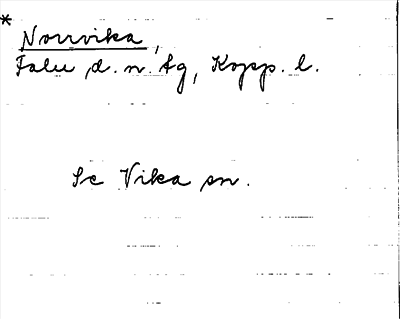 *
Norrvika,
Falu d. n. tg, Kopp. l.
Se Vika sn.